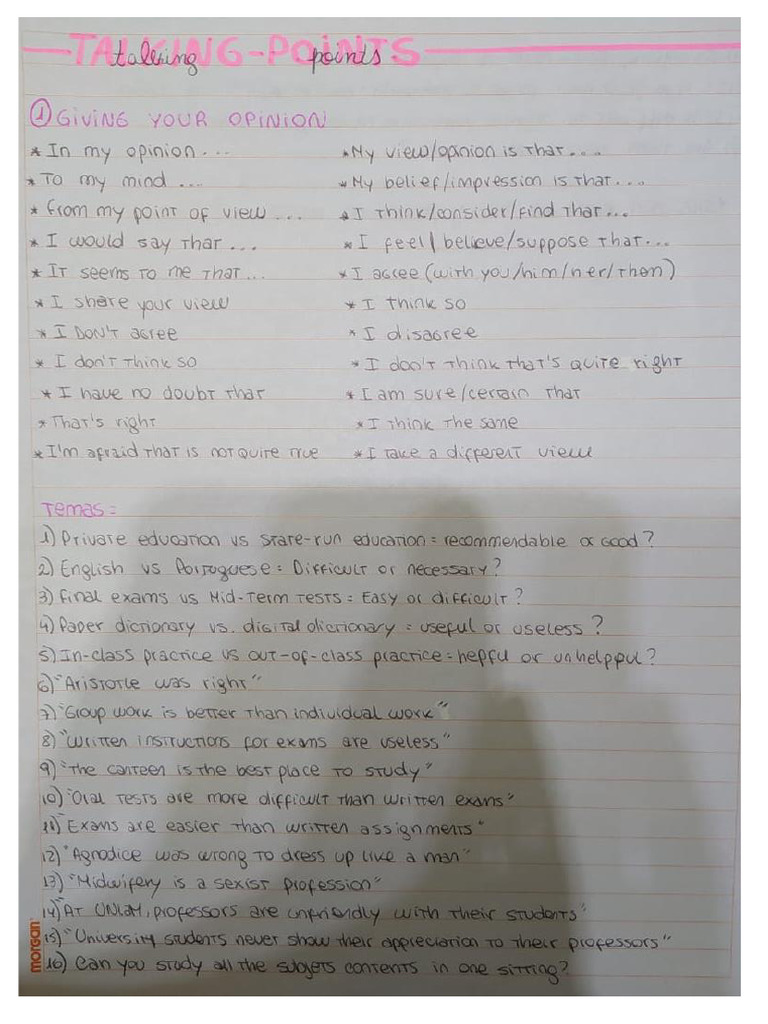 TALKING-POINTS
talking points.
① GIVING YOUR OPINION
* In my opinion... * My view/opinion is that....
* To my mind ... * My belief/impression is that....
* from my point of view ... * I think/consider/find that...
* I would say that ... * I feel/believe/suppose that...
* It seems to me that... * I agree (with you/him/her/them)
* I share your view * I think so
* I DON'T agree * I disagree
* I don't think so * I don't think that's quite right
* I have no doubt that * I am sure/certain that
* That's right * I think the same
* I'm afraid that is not quite true * I take a different view
Temas=
1) Private education vs state-run education = recommendable or Good?
2) English vs Portuguese = Difficult or necessary?
3) final exams vs Mid-Term tests = Easy or difficult?
4) Paper dictionary vs. digital dictionary = useful or useless?
5) In-class practice vs out-of-class practice = hepful or unhelpful?
6) "Aristotle was right"
7) "Group work is better than individual work"
8) "Written instructions for exams are useless"
9) "The canteen is the best place to study"
10) "Oral tests are more difficult than written exans"
11) "Exams are easier than written assignments"
12) "Agnodice was wrong to dress up like a man"
13) "Midwifery is a sexist profession"
14) "At UNLaM, professors are unfriendly with their students"
15) "University students never show their appreciation to their professors"
16) Can you study all the subjets contents in one sitting?
morgan